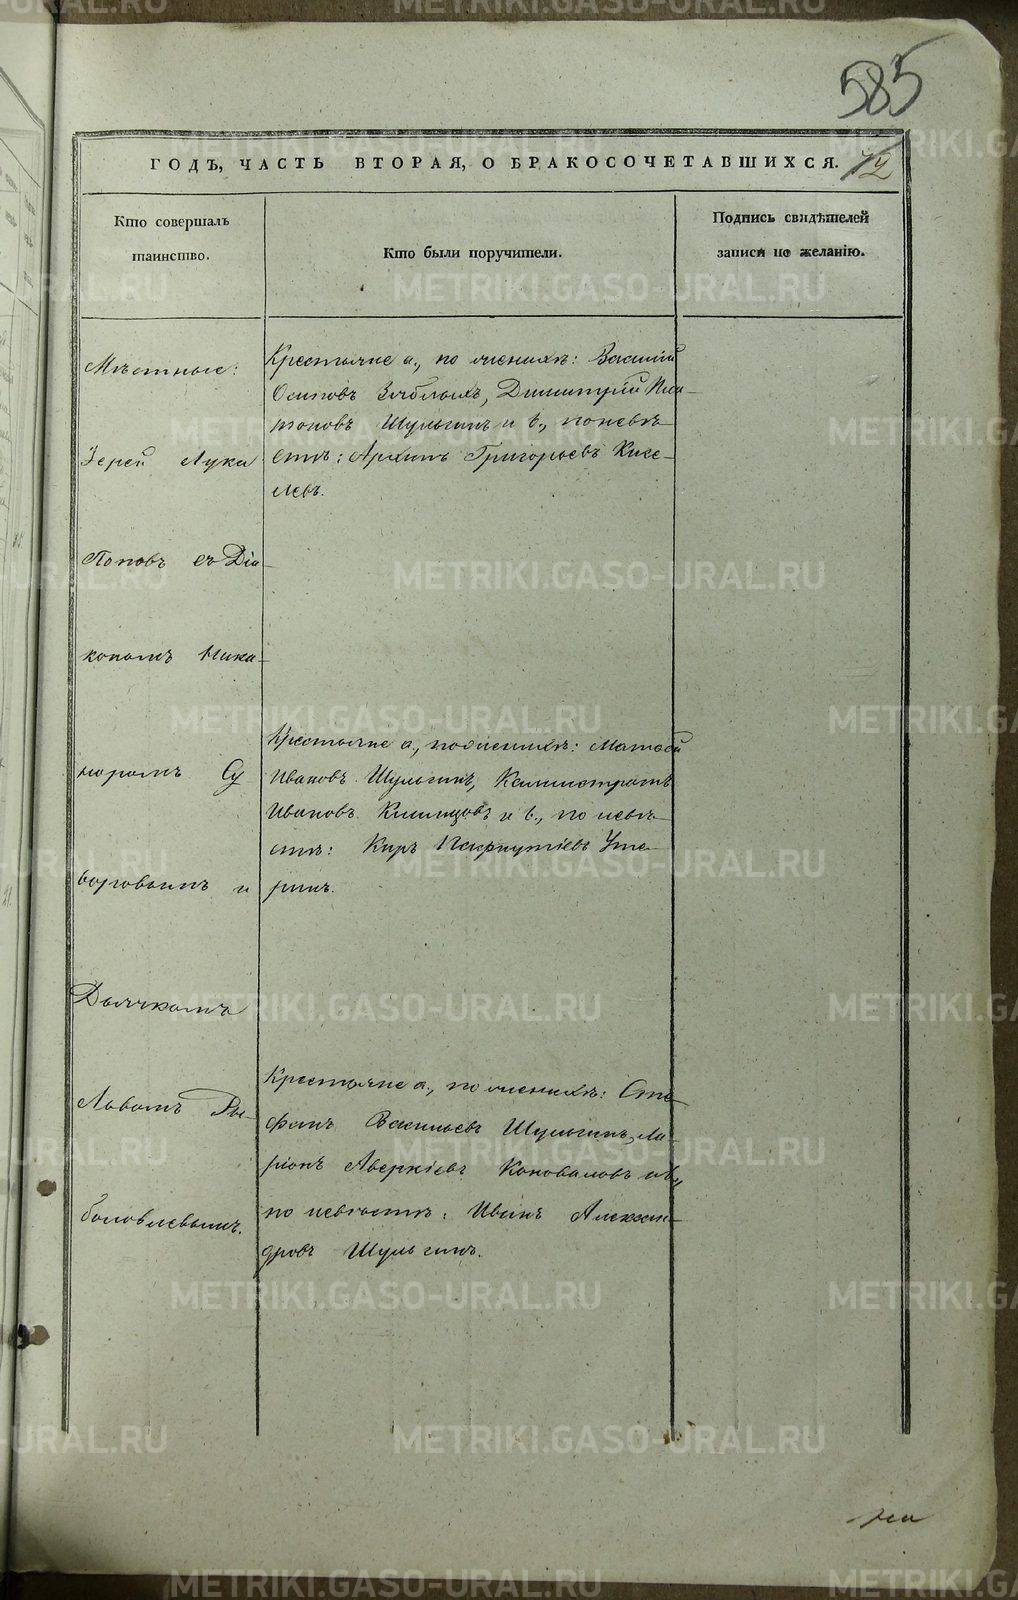 585
ГОДЪ, ЧАСТЬ ВТОРАЯ, О БРАКОСОЧЕТАВШИХСЯ.
Кто совершалъ
таинство.
Кто были поручители.
Подпись свидѣтелей
записи по желанію.
Мѣстные:
Іерей Лука
Поповъ съ Діа-
кономъ Ника-
норомъ Су
воровымъ и
Дьячкомъ
Львомъ Ры-
боловлевымъ.
Крестьяне а., по женихѣ: Василій
Осиповъ Зябликъ, Димитрій Пла-
тоновъ Шульгинъ и б., по невѣ-
стѣ: Архипъ Григорьевъ Кисе-
левъ.
Крестьяне а., по женихѣ: Матвей
Ивановъ Шульгинъ, Каллистратъ
Ивановъ Кишицовъ и б., по невѣ-
стѣ: Киръ Пафнутіевъ Уте-
ринъ.
Крестьяне а., по женихѣ: Сте-
фанъ Васильевъ Шульгинъ, Ла-
ріонъ Аверкіевъ Коноваловъ и б.,
по невѣстѣ: Иванъ Алексан-
дровъ Шульгинъ.
METRIKI.GASO-URAL.RU